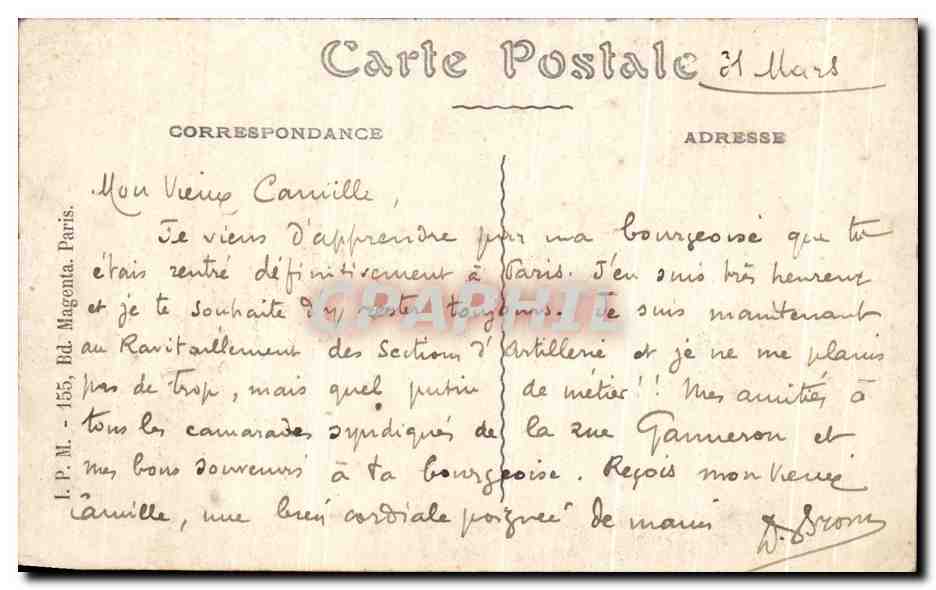 Carte Postale
31 Mars
CORRESPONDANCE
ADRESSE
Mon Vieux Camille,
Je viens d'apprendre par ma bourgeoise que tu
étais rentré définitivement à Paris. J'en suis très heureux
et je te souhaite d'y rester toujours. Je suis maintenant
au Ravitaillement des Sections d'Artillerie et je ne me plains
pas de trop, mais quel putin de métier!! Mes amitiés à
tous les camarades syndiqués de la rue Ganneron et
mes bons souvenirs à ta bourgeoise. Reçois mon vieux
Camille, une bien cordiale poignée de main
I. P. M. - 155, Bd. Magenta. Paris.
CPAPHIL